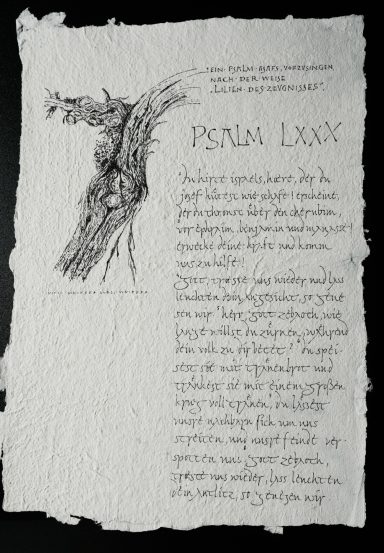 EIN · PSALM · ASAFS, VORZUSINGEN
NACH · DER · WEISE
„LILIEN · DES · ZEUGNISSES“.
PSALM LXXX
Du hirte israels, hœre, der du
josef hütest wie schafe! erscheine,
der du thronst über den cherubim,
vor ephraim, benjamin und manasse!
erwecke deine kraft und komm
uns zu hilfe!
Gott, trœste uns wieder und lass
leuchten dein angesicht, so gene
sen wir. herr, gott zebaoth, wie
lange willst du zürnen, während
dein volk zu dir betet? du spei
sest sie mit trænenbrot und
trænkest sie mit einem großen
krug voll trænen. du lässest
unsre nachbarn sich um uns
streiten, und unsre feinde ver
spotten uns. gott zebaoth,
trœste uns wieder, lass leuchten
dein antlitz, so genesen wir